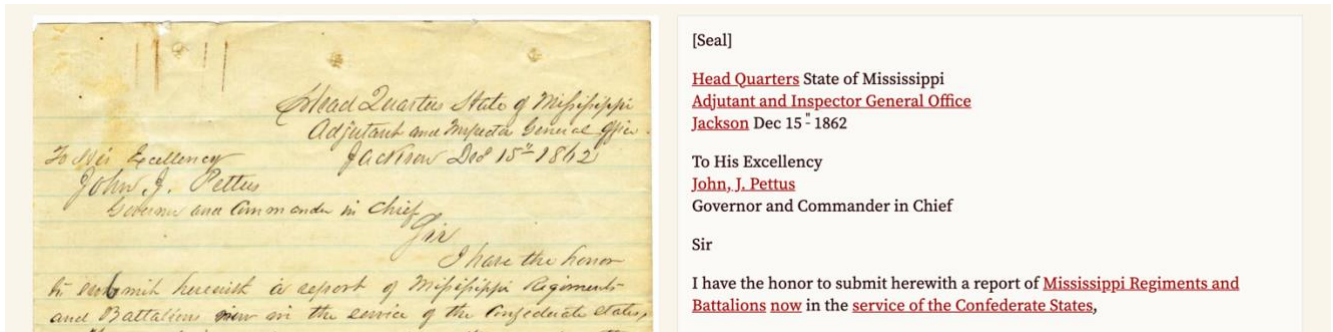 Head Quarters State of Mississippi
Adjutant and Inspector General Office
Jackson Dec 15" 1862
To His Excellency
John J. Pettus
Governor and Commander in Chief
Sir
I have the honor
to submit herewith a report of Mississippi Regiments
and Battalions now in the service of the Confederate States,
[Seal]
Head Quarters State of Mississippi
Adjutant and Inspector General Office
Jackson Dec 15 " 1862
To His Excellency
John, J. Pettus
Governor and Commander in Chief
Sir
I have the honor to submit herewith a report of Mississippi Regiments and
Battalions now in the service of the Confederate States,